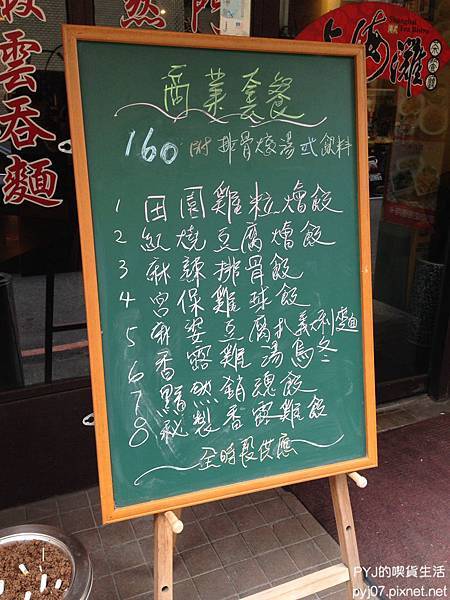 蝦雲吞麵
然
上海灘
Shanghai
商業套餐
160 附排骨燉湯或飲料
1 田園雞粒燴飯
2 紅燒豆腐燴飯
3 麻辣排骨飯
4 宮保雞球飯
5 麻婆豆腐扒義利麵
6 香露雞湯烏冬
7 黯然銷魂飯
8 秘製香露雞飯
全時段供應
PYJ的喫貨生活
pyj07.pixnet.net